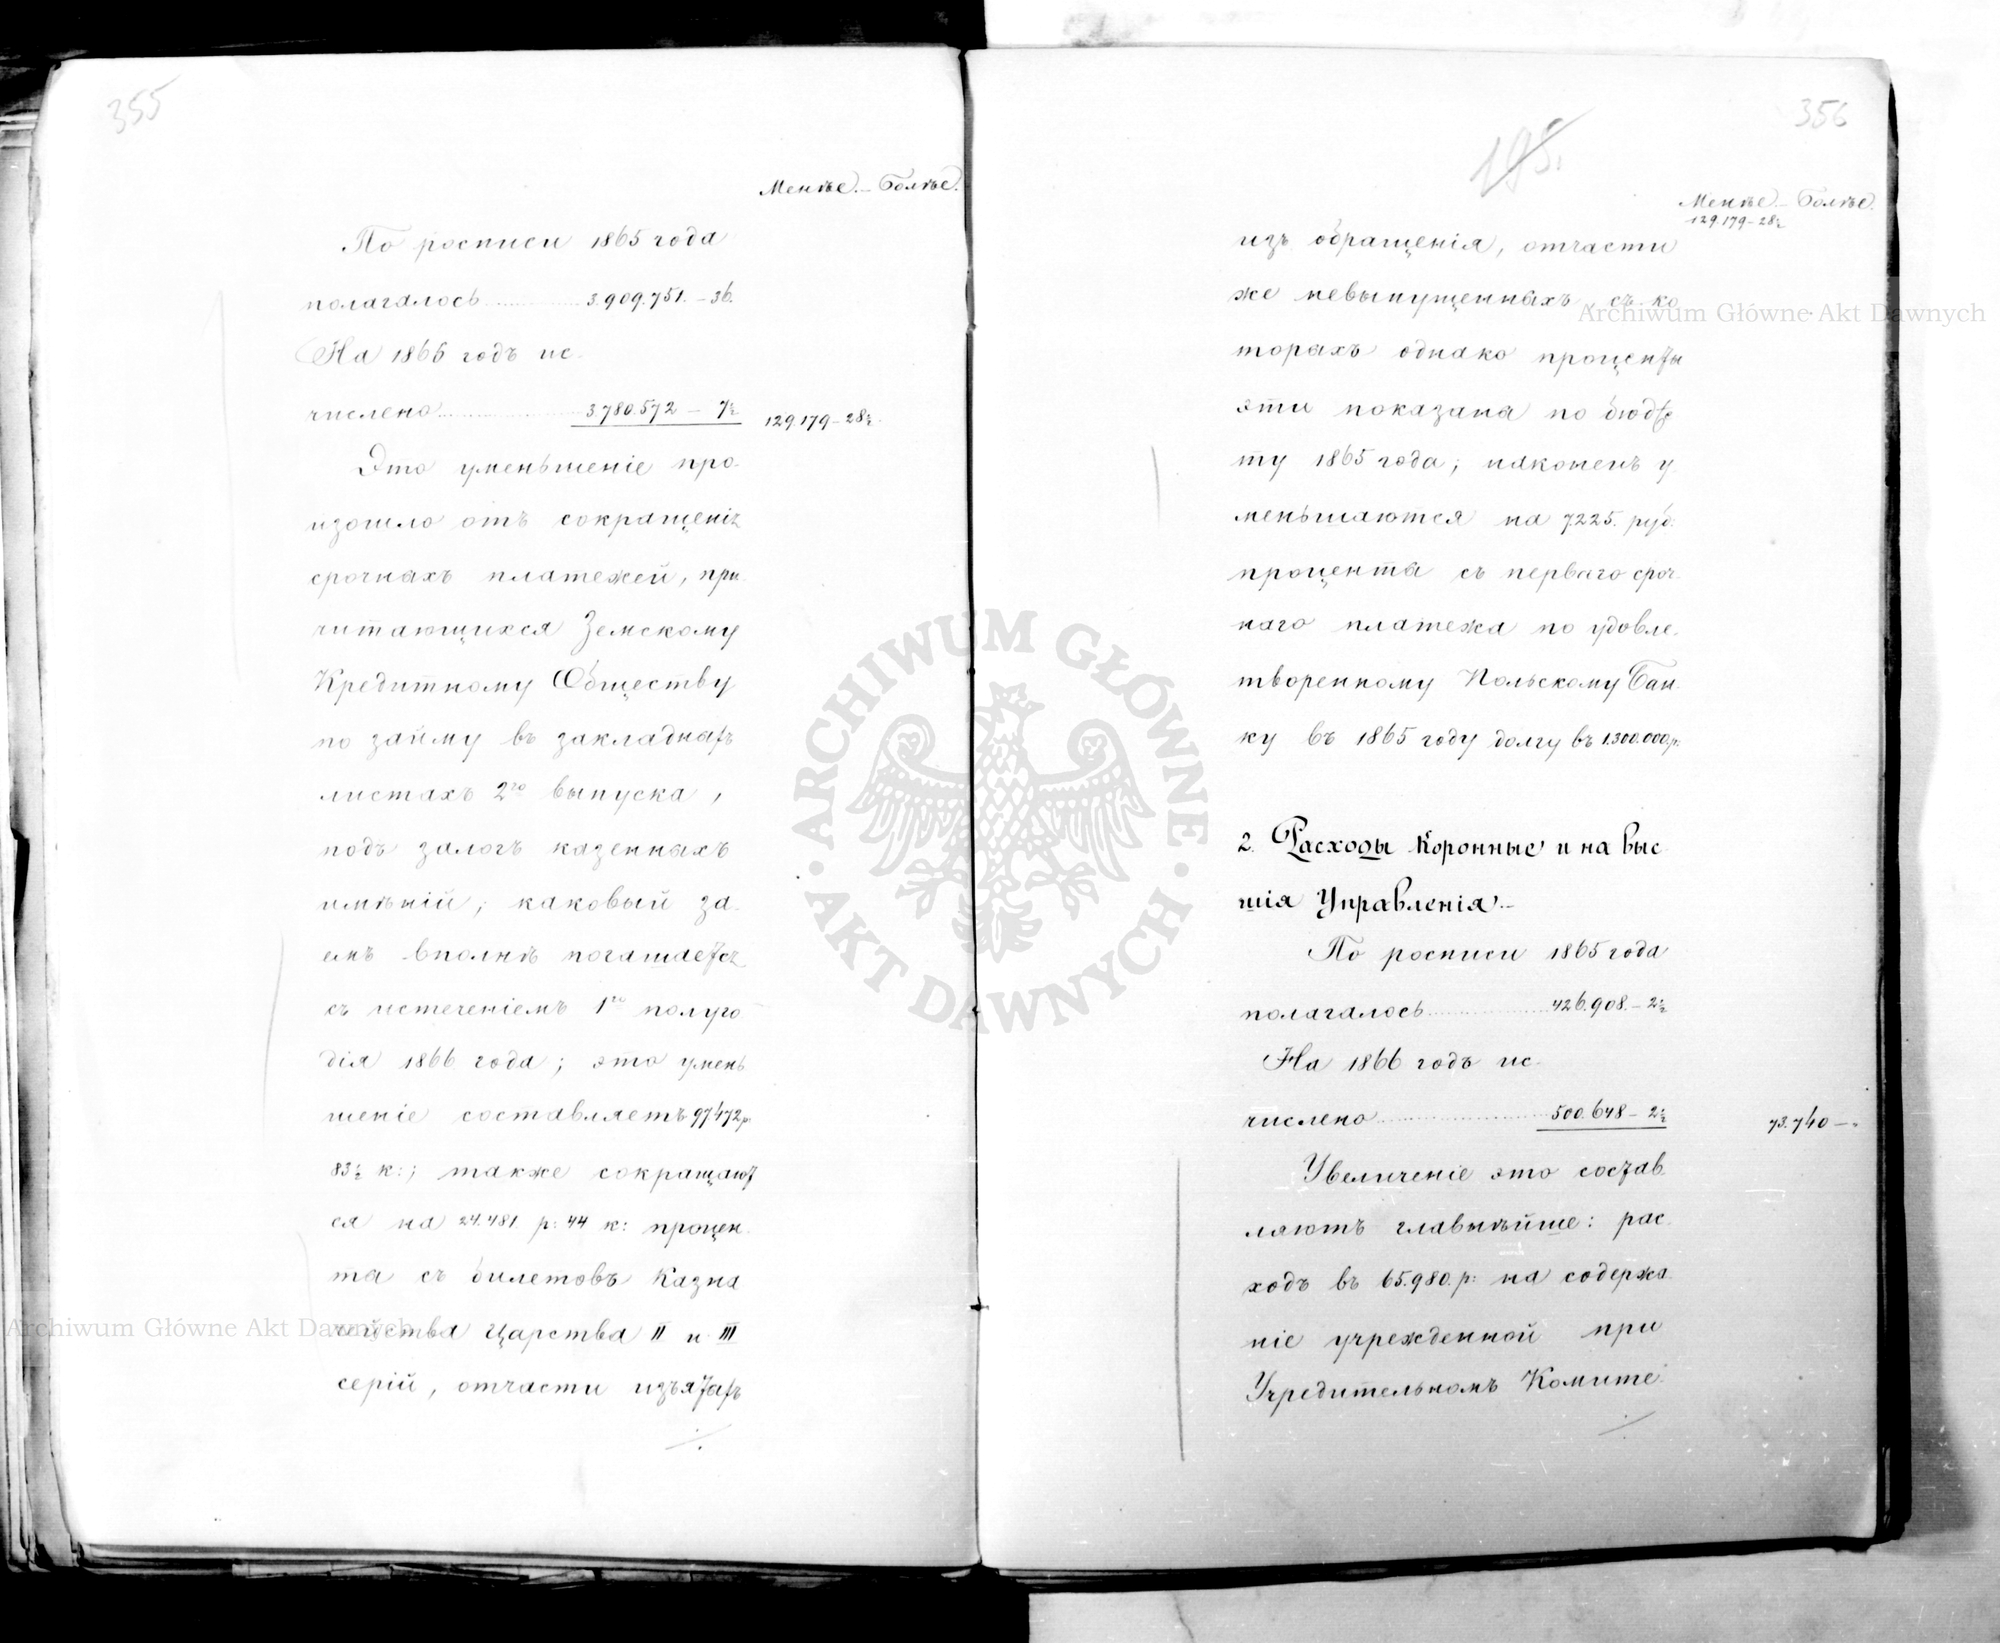 355
Менѣе. – Болѣе.
По росписи 1865 года
полагалось 3.909.751. – 36.
На 1866 годъ ис-
числено 3.780.572 – 7½ 129.179 – 28½.
Это уменьшеніе про-
изошло отъ сокращенія
срочныхъ платежей, при-
читающихся Земскому
Кредитному Обществу
по займу въ закладныхъ
листахъ 2го выпуска,
подъ залогъ казенныхъ
имѣній, каковый за-
емъ вполнѣ погашается
съ истеченіемъ 1го полуго-
дія 1866 года; это умень
шеніе составляетъ 97472 р.
83½ к:; также сокращают
ся на 24.481 р: 44 к: процен-
та съ билетовъ Казна
чейства Царства II и III
серій, отчасти изъятыхъ
./.
356
198.
Менѣе. – Болѣе.
129.179 – 28½
изъ обращенія, отчасти
же невыпущенныхъ съ ко
торыхъ однако проценты
эти показаны по бюдже
ту 1865 года; наконецъ у-
меньшаются на 7.225. руб:
процента съ перваго сроч-
наго платежа по удовле-
творенному Польскому Бан-
ку въ 1865 году долгу въ 1.300.000 р:
2. Расходы Коронные и на Выс
шія Управленія. –
По росписи 1865 года
полагалось 426.908. – 2½
На 1866 годъ ис-
числено 500.648 – 2½ 73.740 – „
Увеличеніе это состав-
ляютъ главнѣйше: рас-
ходъ въ 65.980. р: на содержа-
ніе учрежденной при
Учредительномъ Комите-
./.
Archiwum Główne Akt Dawnych
Archiwum Główne Akt Dawnych
ARCHIWUM GŁÓWNE · AKT DAWNYCH ·